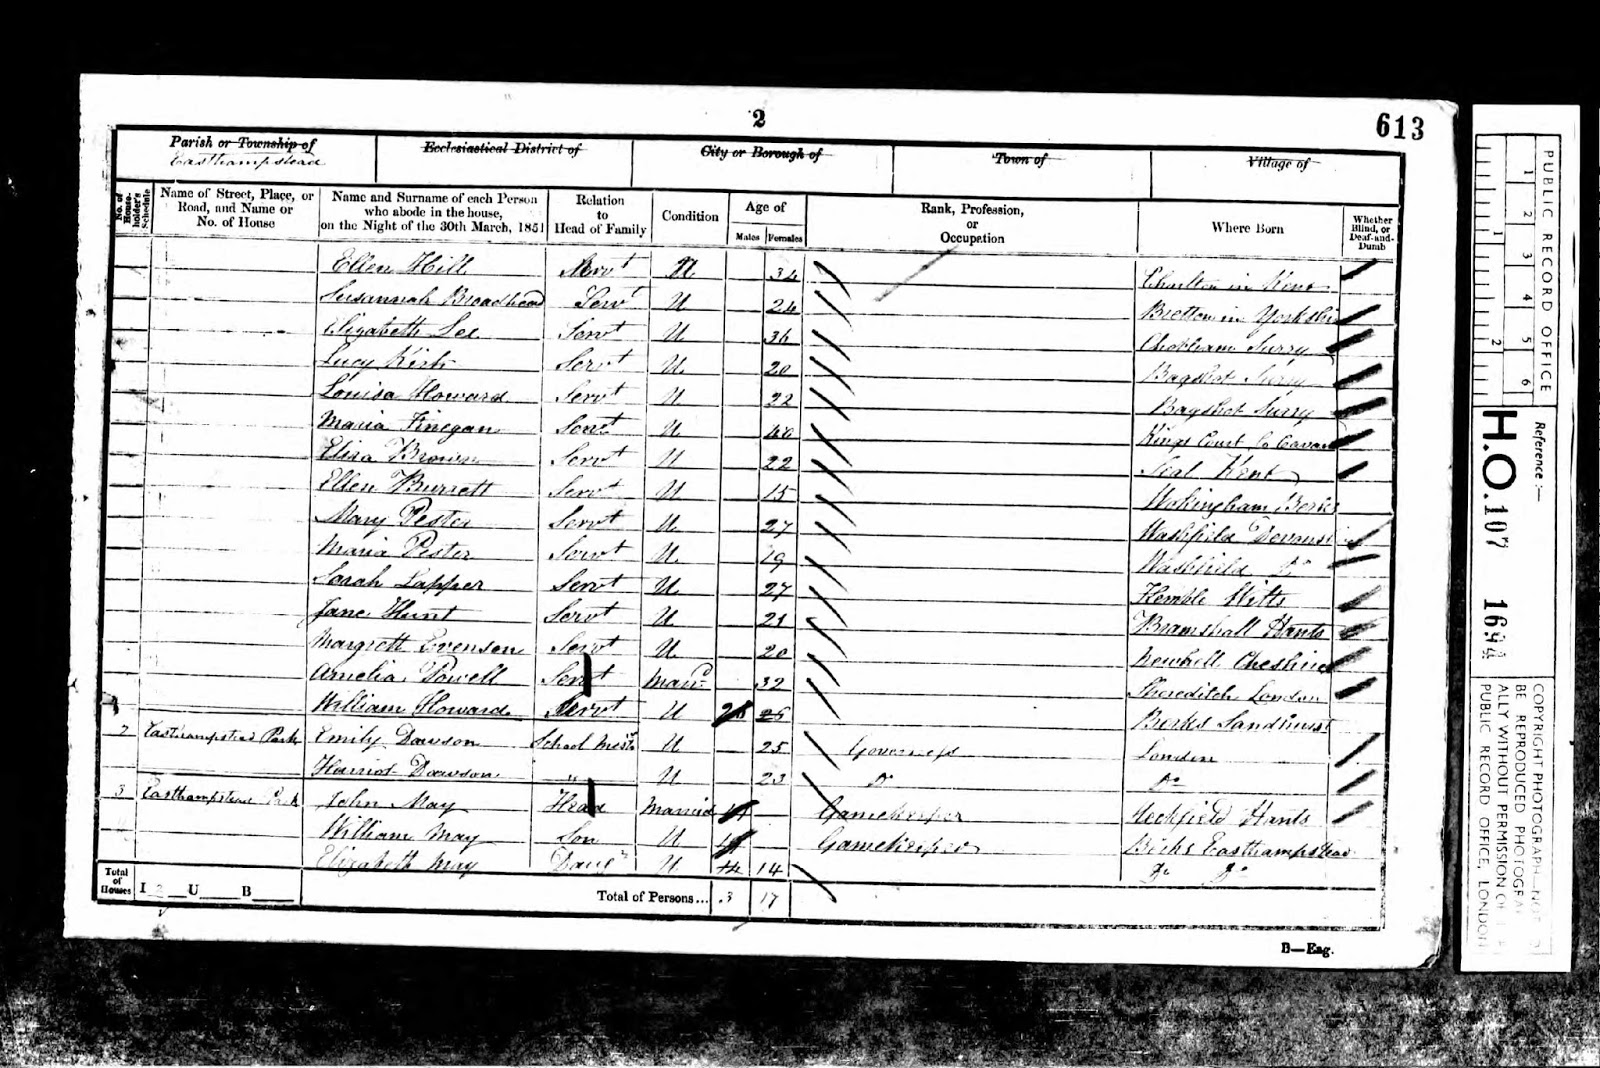 2
613
Parish or Township of
Easthampstead
Ecclesiastical District of
City or Borough of
Town of
Village of
No. of House-holder's Schedule
Name of Street, Place, or Road, and Name or No. of House
Name and Surname of each Person who abode in the house, on the Night of the 30th March, 1851
Relation to Head of Family
Condition
Age of
Males Females
Rank, Profession, or Occupation
Where Born
Whether Blind, or Deaf-and-Dumb
Ellen Hill Servt U 34 in Kent
Susannah Broadhead Servt U 24 Bretton in Yorkshire
Elizabeth Lee Servt U 36 Chobham Surry
Lucy Kirk Servt U 20 Bagshot Surry
Louisa Howard Servt U 22 Bagshot Surry
Maria Finegan Servt U 40 Kings Court Co Cavan
Eliza Brown Servt U 22 Seal Kent
Ellen Burrett Servt U 15 Wokingham Berks
Mary Pester Servt U 27 Washfield Devons
Maria Pester Servt U 19 Washfield Do
Sarah Lapper Servt U 27 Kemble Wilts
Jane Hunt Servt U 21 Bramshall Hants
Margrett Evenson Servt U 20 Newhall Cheshire
Amelia Powell Servt Mard 32 Shereditch London
William Howard Servt U 26 26 Berks Sandhurst
2 Easthampstead Park Emily Dawson School Mistr U 25 Governess London
Harriot Dawson " U 23 Do Do
3 Easthampstead Park John May Head Married Gamekeeper Heckfield Hants
William May Son U Gamekeeper Berks Easthampstead
Elizabeth May Daugr U 14 14 Do Do
Total of Houses I 2 U B Total of Persons... 3 17
D—Eng.
PUBLIC RECORD OFFICE
1 2 3 4 5 6
1 2
Reference :—
H.O. 107 1694
COPYRIGHT PHOTOGRAPH—NOT
BE REPRODUCED PHOTOGRA
ALLY WITHOUT PERMISSION OF
PUBLIC RECORD OFFICE, LONDON